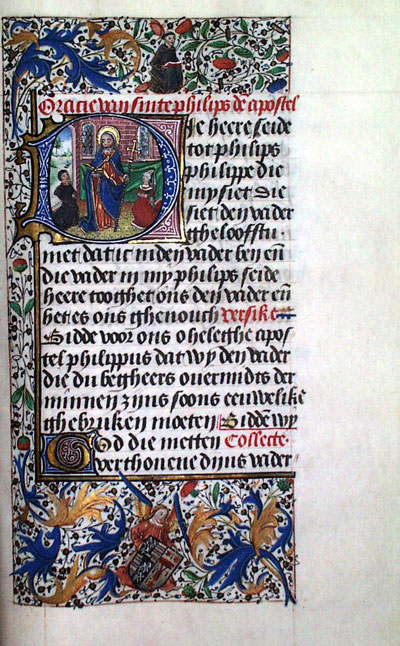 Oratie van sinte philips de apostel
Die heere seide
tot philips
philippe die
my siet die
siet den vader
gheloofstu
niet dat ic inden vader ben en̄
die vader in my philips seide
heere tooghet ons den vader en̄
het es ons ghenouch versikel
Bidde voor ons o heleghe apos
tel philippus dat wy den vader
die du begheers overmidts der
minnen zijns soons eeuwelike
ghebruken moeten Bidden wy
God die metten Collecte
verthoene dijns vader